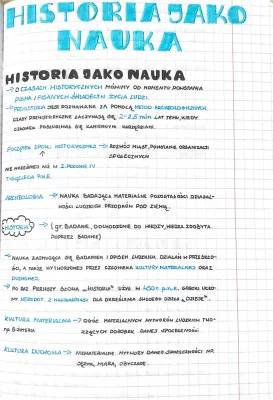 HISTORIA JAKO
NAUKA
HISTORIA JAKO NAUKA
→ O CZASACH HISTORYCZNYCH MÓWIMY OD MOMENTU POWSTANIA
PISMA I PISANYCH ŚWIADECTW ŻYCIA LUDZI.
→ PREHISTORIA JEST POZNAWANA ZA POMOCĄ METOD ARCHEOLOGICZNYCH.
CZASY PREHISTORYCZNE ZACZYNAJĄ SIĘ 2-2,5 mln LAT TEMU, KIEDY
CZŁOWIEK POSŁUGIWAŁ SIĘ KAMIENNYMI NARZĘDZIAMI.
POCZĄTEK EPOKI HISTORYCZNEJ → ROZWÓJ MIAST, POWSTANIE ORGANIZACJI
SPOŁECZNYCH
MIAŁ MIEJSCE W I POŁOWIE IV
TYSIĄCLECIA P.N.E.
ARCHEOLOGIA → NAUKA BADAJĄCA MATERIALNE POZOSTAŁOŚCI DZIAŁAL-
NOŚCI LUDZKICH PRZODKÓW POD ZIEMIĄ.
HISTORIA → (gr. BADANIE, DOCHODZENIE DO WIEDZY, WIEDZA ZDOBYTA
POPRZEZ BADANIE)
→ NAUKA ZAJMUJĄCA SIĘ BADANIEM I OPISEM LUDZKICH DZIAŁAŃ W PRZESZŁO-
ŚCI, A TAKŻE WYTWORZONEJ PRZEZ CZŁOWIEKA KULTURY MATERIALNEJ ORAZ
DUCHOWEJ.
→ PO RAZ PIERWSZY SŁOWA „HISTORIA" UŻYŁ W 450 r. p.n.e. GRECKI UCZO-
NY HERODOT Z HALIKARNASU DLA OKREŚLENIA SWOJEGO DZIEŁA „DZIEJE".
KULTURA MATERIALNA → OGÓŁ MATERIALNYCH WYTWORÓW LUDZKICH TWO-
RZĄCYCH DOROBEK DANEJ SPOŁECZNOŚCI.
KULTURA DUCHOWA → NIEMATERIALNE WYTWORY DANEJ SPOŁECZNOŚCI NP.
JĘZYK, WIARA, OBYCZAJE.